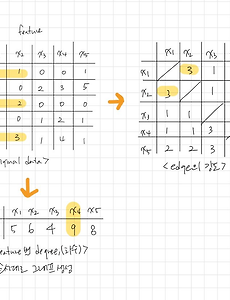 feature
x₂ x₃ x₄ x₅
1 0 0 1
0 2 3 5
2 0 0 0
0 1 2 1
3 1 4 1
x₁ x₂ x₃
x₁ 3 1
x₂ 3 1
x₃ 1 1
x₄ 1 1 3
x₅ 2 2 3
<edge의 강도>
data>
x₁ x₂ x₃ x₄ x₅
5 6 4 9 8
degree